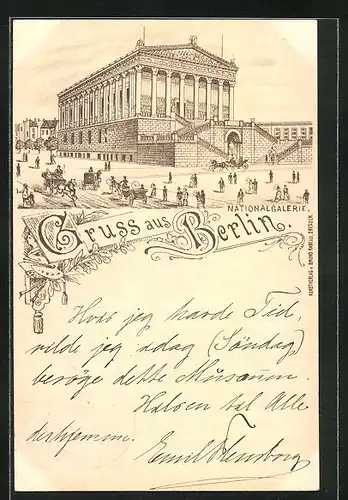 NATIONALGALERIE.
Gruss aus Berlin.
KUNSTVERLAG v. BRUNO BÜRGER, DRESDEN
Hvis jeg havde Tid,
vilde jeg idag (Söndag)
besöge dette Museum.
Hilsen til Alle
derhjemme.
Emil Flensborg